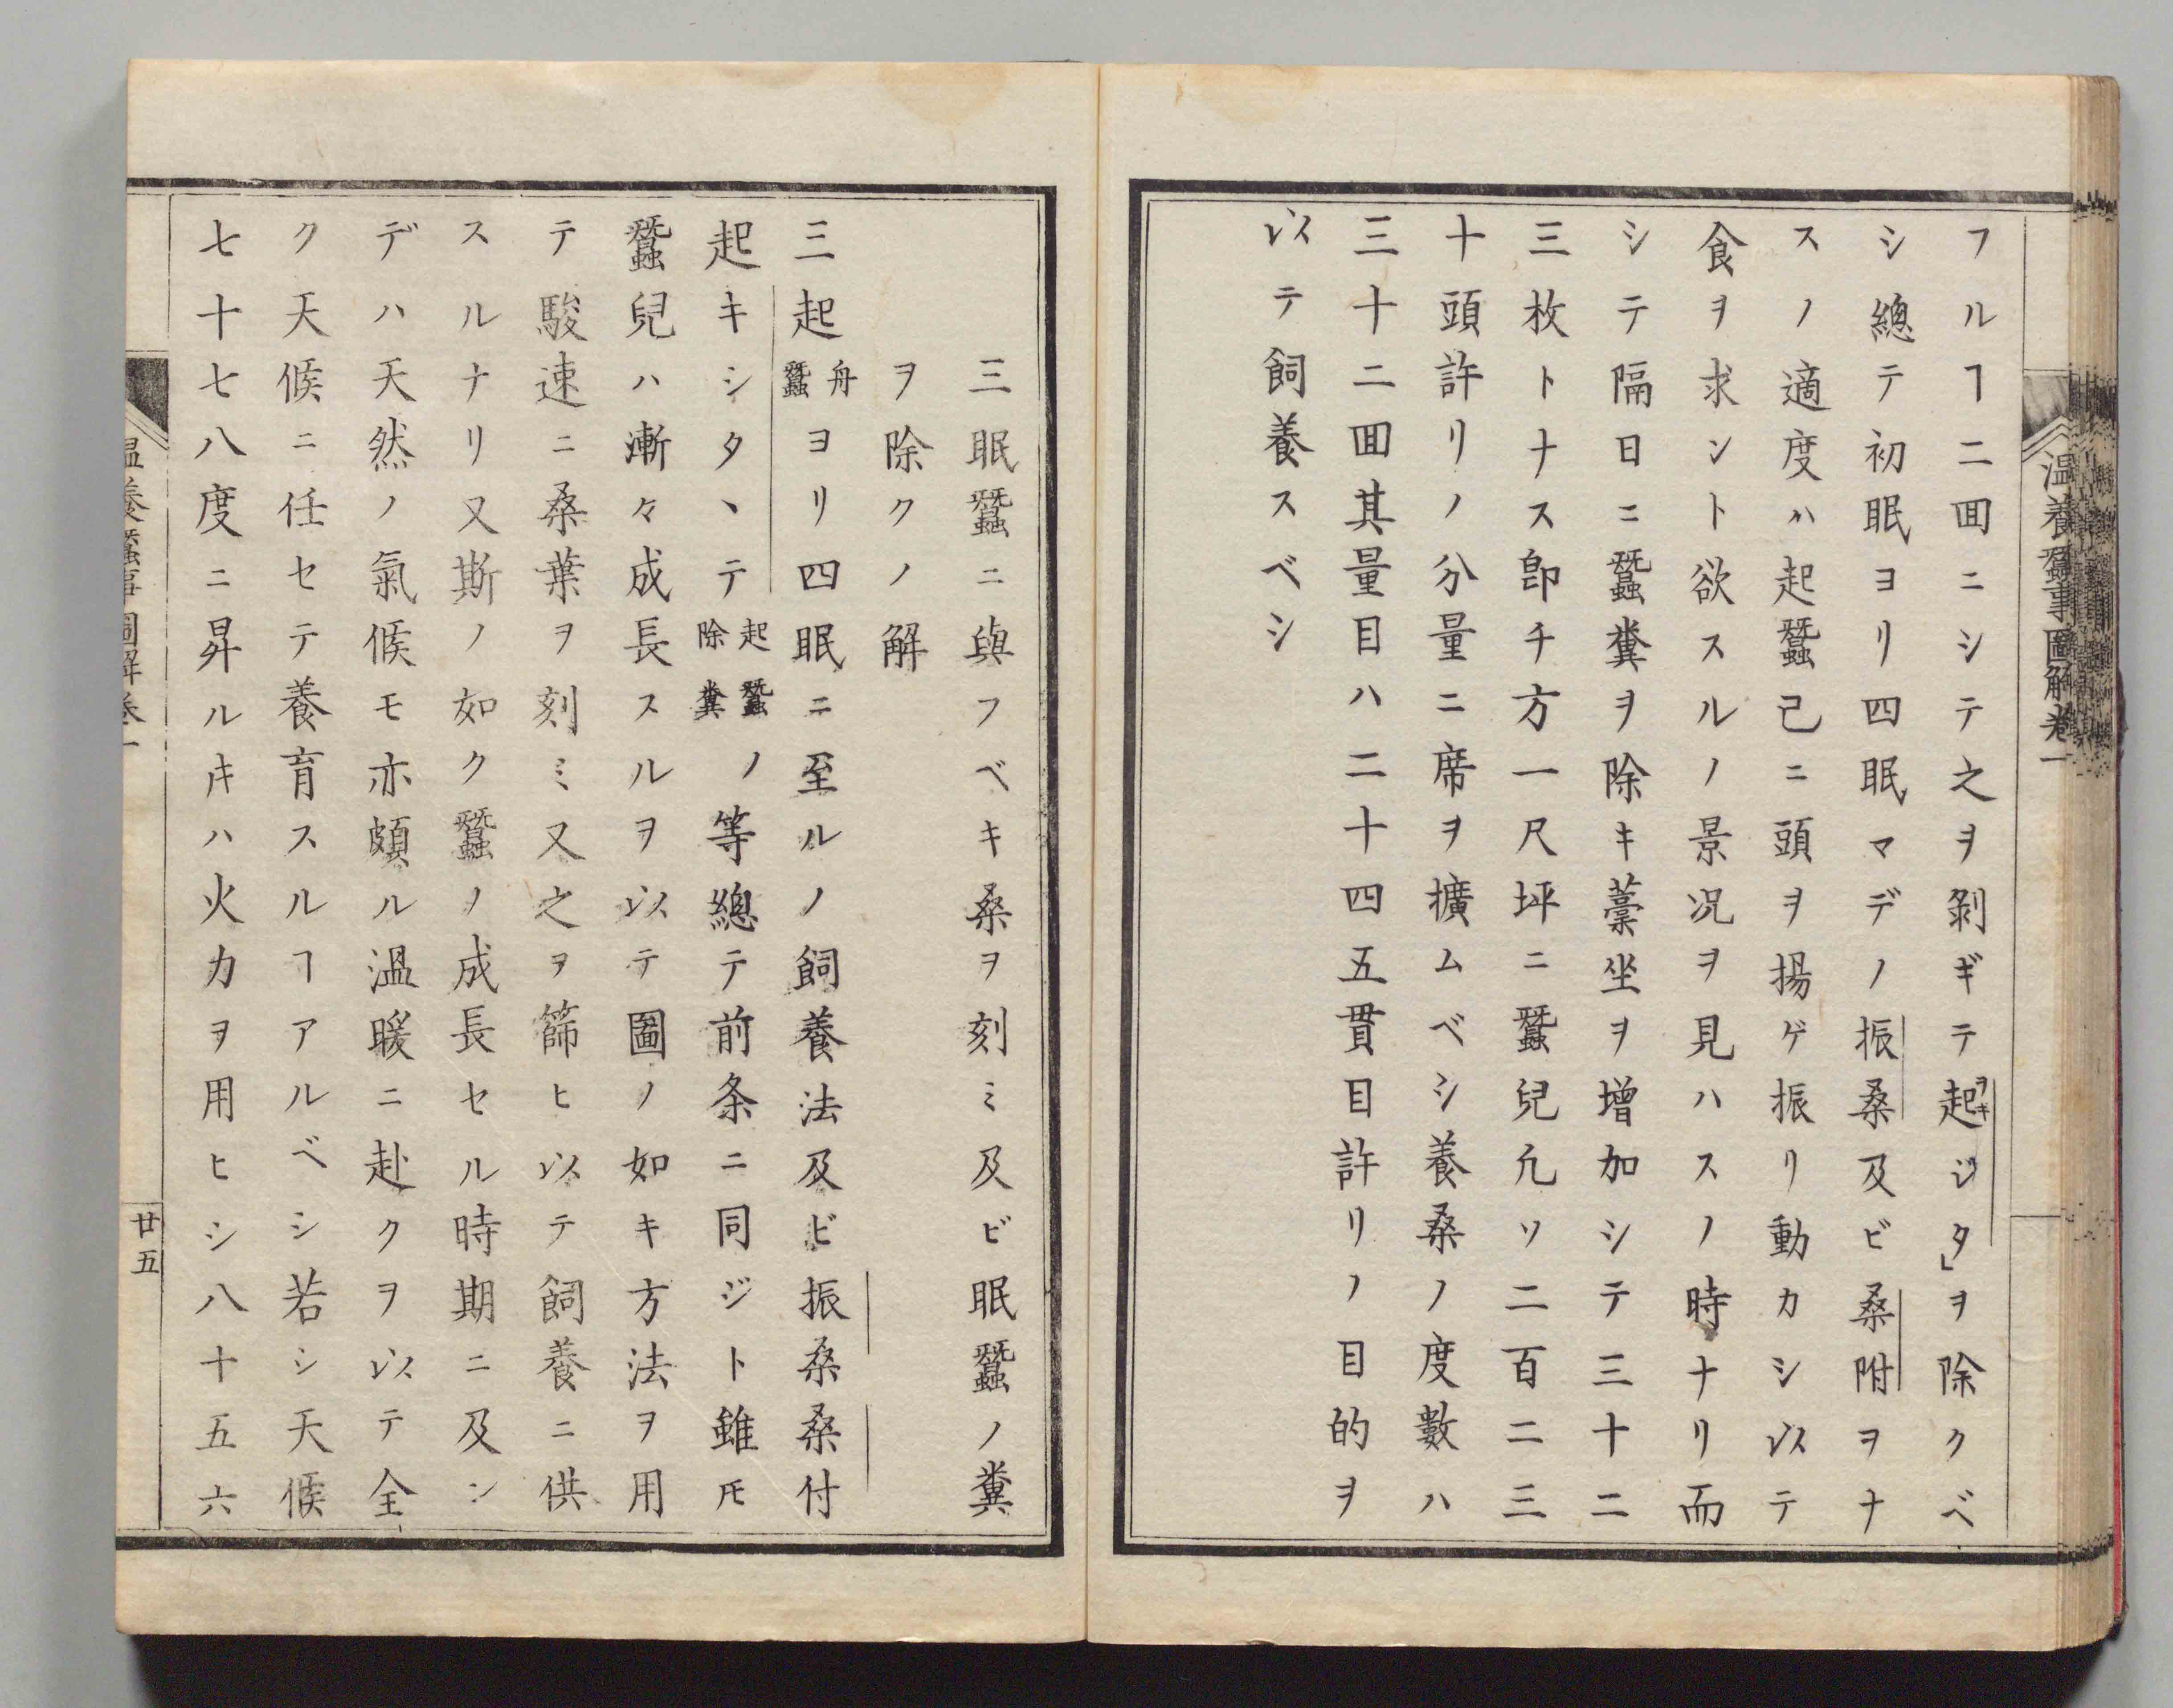 温養蠶事圖解卷一
フルヿ二囬ニシテ之ヲ剝ギテ起ヲキジタ」ヲ除クベ
シ總テ初眠ヨリ四眠マデノ振桑及ビ桑附ヲナ
スノ適度ハ起蠶已ニ頭ヲ揚ゲ振リ動カシ以テ
食ヲ求ント欲スルノ景況ヲ見ハスノ時ナリ而
シテ隔日ニ蠶糞ヲ除キ藁坐ヲ增加シテ三十二
三枚トナス卽チ方一尺坪ニ蠶兒凢ソ二百二三
十頭許リノ分量ニ席ヲ擴ムベシ養桑ノ度數ハ
三十二囬其量目ハ二十四五貫目許リノ目的ヲ
以テ飼養スベシ
三眠蠶ニ與フベキ桑ヲ刻ミ及ビ眠蠶ノ糞
ヲ除クノ解
三起舟蠶ヨリ四眠ニ至ルノ飼養法及ビ振桑桑付
起キシタヽテ起蠶除糞ノ等總テ前条ニ同ジト雖ド𪜈
蠶兒ハ漸々成長スルヲ以テ圖ノ如キ方法ヲ用
テ駿速ニ桑葉ヲ刻ミ又之ヲ篩ヒ以テ飼養ニ供
スルナリ又斯ノ如ク蠶ノ成長セル時期ニ及ン
デハ天然ノ氣候モ亦頗ル溫暖ニ赴クヲ以テ全
ク天候ニ任セテ養育スルヿアルベシ若シ天候
七十七八度ニ昇ルキハ火力ヲ用ヒシ八十五六
温養蠶事圖解卷一
廿五